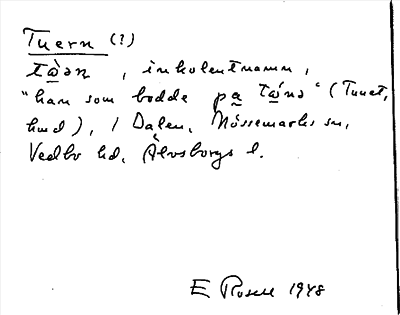 Tuern (?)
tὼ̲ən, inkolentnamn,
"han som bodde på Tώ̲nə" (Tunet,
hmd), i Dalen, Nössemarks sn,
Vedbo hd, Älvsborgs l.
E Rosell 1948